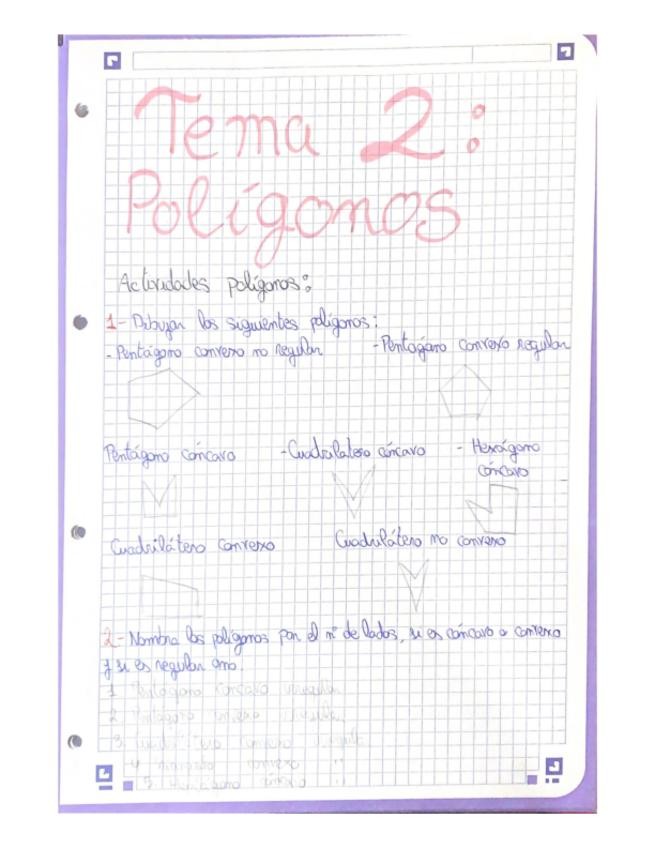 Tema 2:
Polígonos
Actividades polígonos:
1- Dibujar los siguientes polígonos:
- Pentágono convexo no regular - Pentágono convexo regular
Pentágono cóncavo - Cuadrilatero cóncavo - Hexágono cóncavo
Cuadrilátero convexo Cuadrilátero no convexo
2- Nombra los polígonos por el nº de lados, si es cóncavo o convexo
y si es regular o no.
1 Pentágono cóncavo irregular
2. Pentágono
3. Cuadrilátero convexo
4 convexo "
5. "